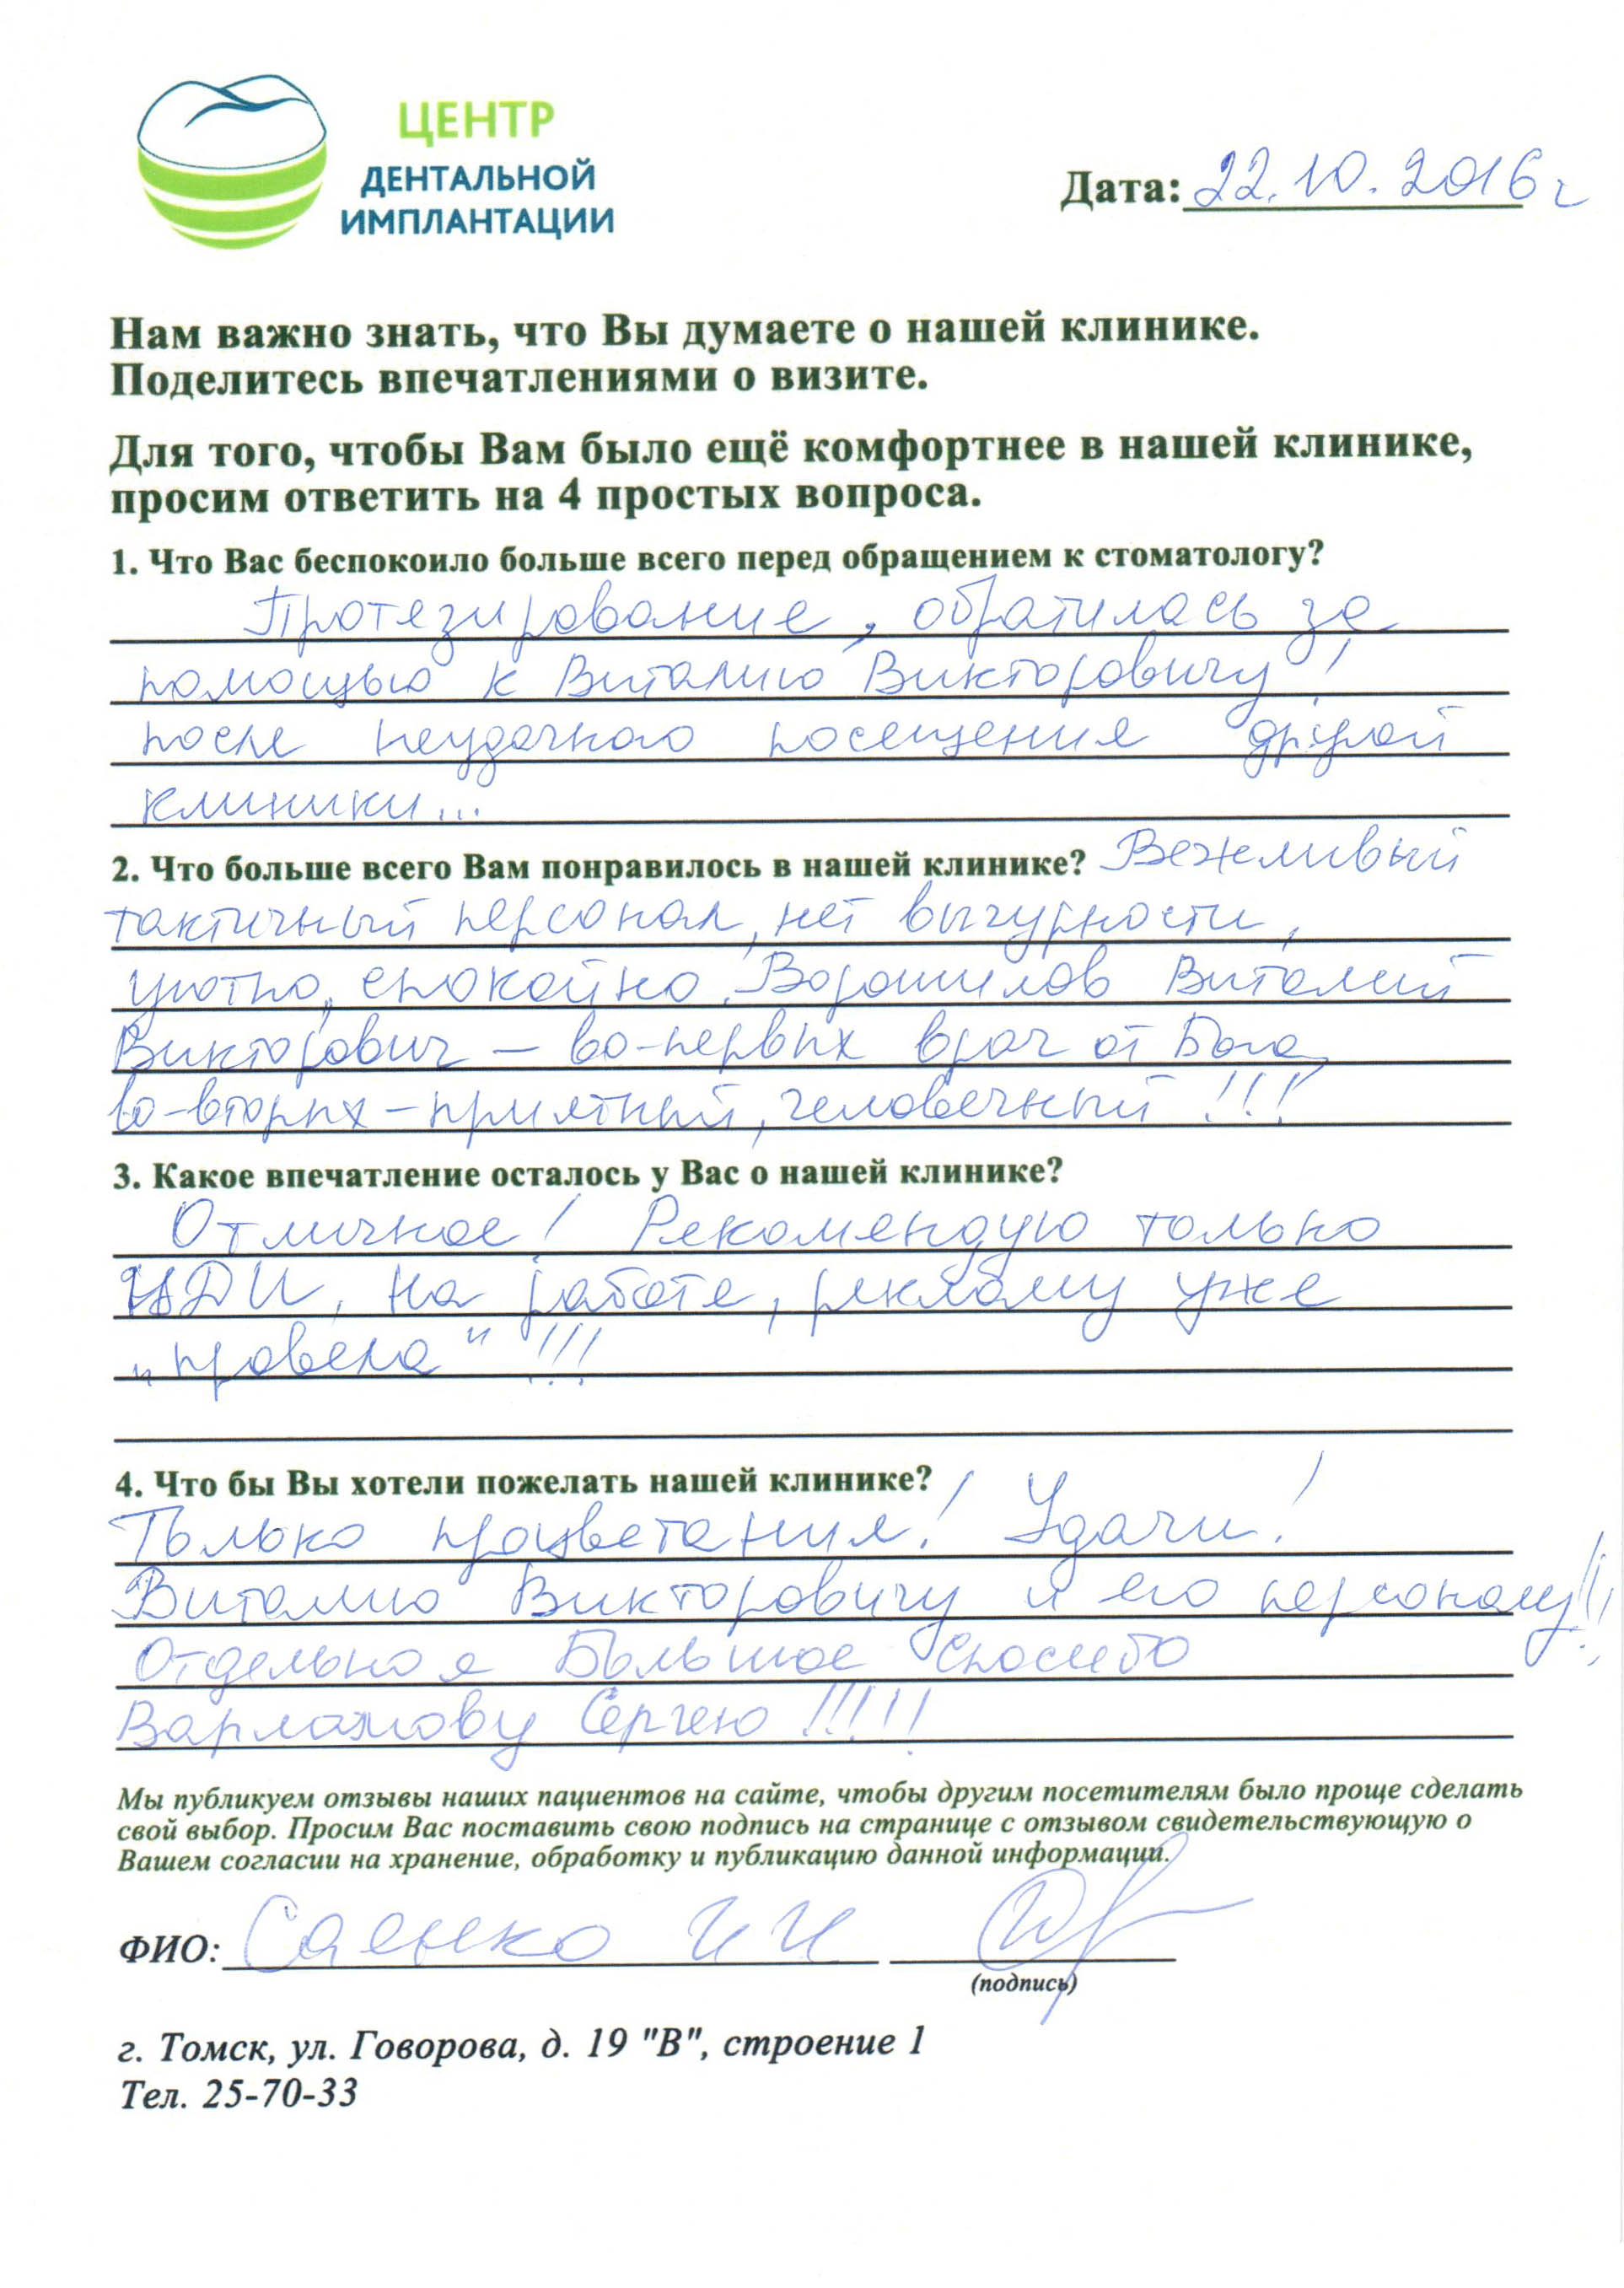 ЦЕНТР
ДЕНТАЛЬНОЙ
ИМПЛАНТАЦИИ
Дата: 22.10.2016 г
Нам важно знать, что Вы думаете о нашей клинике.
Поделитесь впечатлениями о визите.
Для того, чтобы Вам было ещё комфортнее в нашей клинике,
просим ответить на 4 простых вопроса.
1. Что Вас беспокоило больше всего перед обращением к стоматологу?
Протезирование, обратилась за
помощью к Виталию Викторовичу!
после неудачного посещения другой
клиники...
2. Что больше всего Вам понравилось в нашей клинике? Вежливый
тактичный персонал, нет вычурности,
уютно, спокойно. Ворошилов Виталий
Викторович – во-первых врач от Бога,
во-вторых – приятный, человечный!!!
3. Какое впечатление осталось у Вас о нашей клинике?
Отличное! Рекомендую только
ЦДИ, на работе, рекламу уже
„провела“!!!
4. Что бы Вы хотели пожелать нашей клинике?
Только процветания! Удачи!
Виталию Викторовичу и его персоналу!!!
Отдельное Большое спасибо
Варламову Сергею!!!!!
Мы публикуем отзывы наших пациентов на сайте, чтобы другим посетителям было проще сделать
свой выбор. Просим Вас поставить свою подпись на странице с отзывом свидетельствующую о
Вашем согласии на хранение, обработку и публикацию данной информации.
ФИО: Саенко И И
(подпись)
г. Томск, ул. Говорова, д. 19 "В", строение 1
Тел. 25-70-33